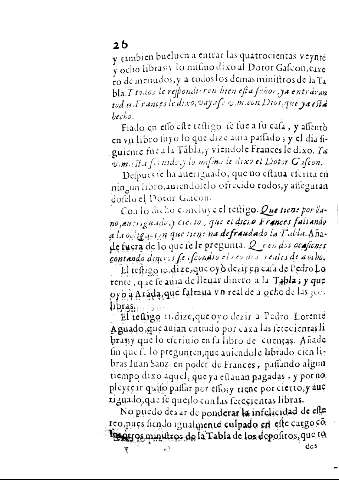 26
y tambien bueluen a entrar las quatrocientas veynte
y ocho libras y lo mismo dixo al Dotor Gascon, caxe
ro de menudos, y a todos los demas ministros de la Ta
bla. Y todos le respondieron bien està señor, ya entraràn
todas, Frances le dixo, vayase v.m. con Dios, que ya està
hecho.
Fiado en esso este testigo se fue a su casa, y assentò
en vn libro suyo lo que dize aura passado; y el dia si-
guiente fue a la Tabla, y viendole Frances le dixo, Ya
v.m. està y lo mismo le dixo el Dotor Gascon.
Despues se ha aueriguado, que no estaua escrita en
ningun libro, auiendolo ofrecido todos, y asseguran
doselo el Dotor Gascon.
Con lo dicho concluye el testigo. Que tiene por lla-
no, aueriguado, y cierto, que el Frances faltando
a la que tiene ha defraudado la Tabla. Aña-
de fuera de lo que se le pregunta. Que en dos ocasiones
contando dineros reales de a ocho.
El testigo 10. dize, que oyò dezir en casa de Pedro Lo
rente, que se auia de lleuar dinero a la Tabla; y que
oyò a que faltaua vn real de a ocho de las
libras.
El testigo 11. dize, que oyò dezir a Pedro Lorente
Aguado, que auian entrado por caxa las setecientas li
bras, y que lo escriuio en su libro de cuentas. Añade
sin que se lo pregunten, que auiendole librado cien li-
bras Iuan Sanz en poder de Frances, passando algun
tiempo dixo aquel, que ya estauan pagadas, y por no
pleytear quiso passar por esso; y tiene por cierto, y aue
riguado, que se quedò con las setecientas libras.
No puedo dexar de ponderar la infelicidad de este
reo, pues siendo igualmente culpado en este cargo cõ
los otros ministros de la Tabla de los depositos, que to
dos